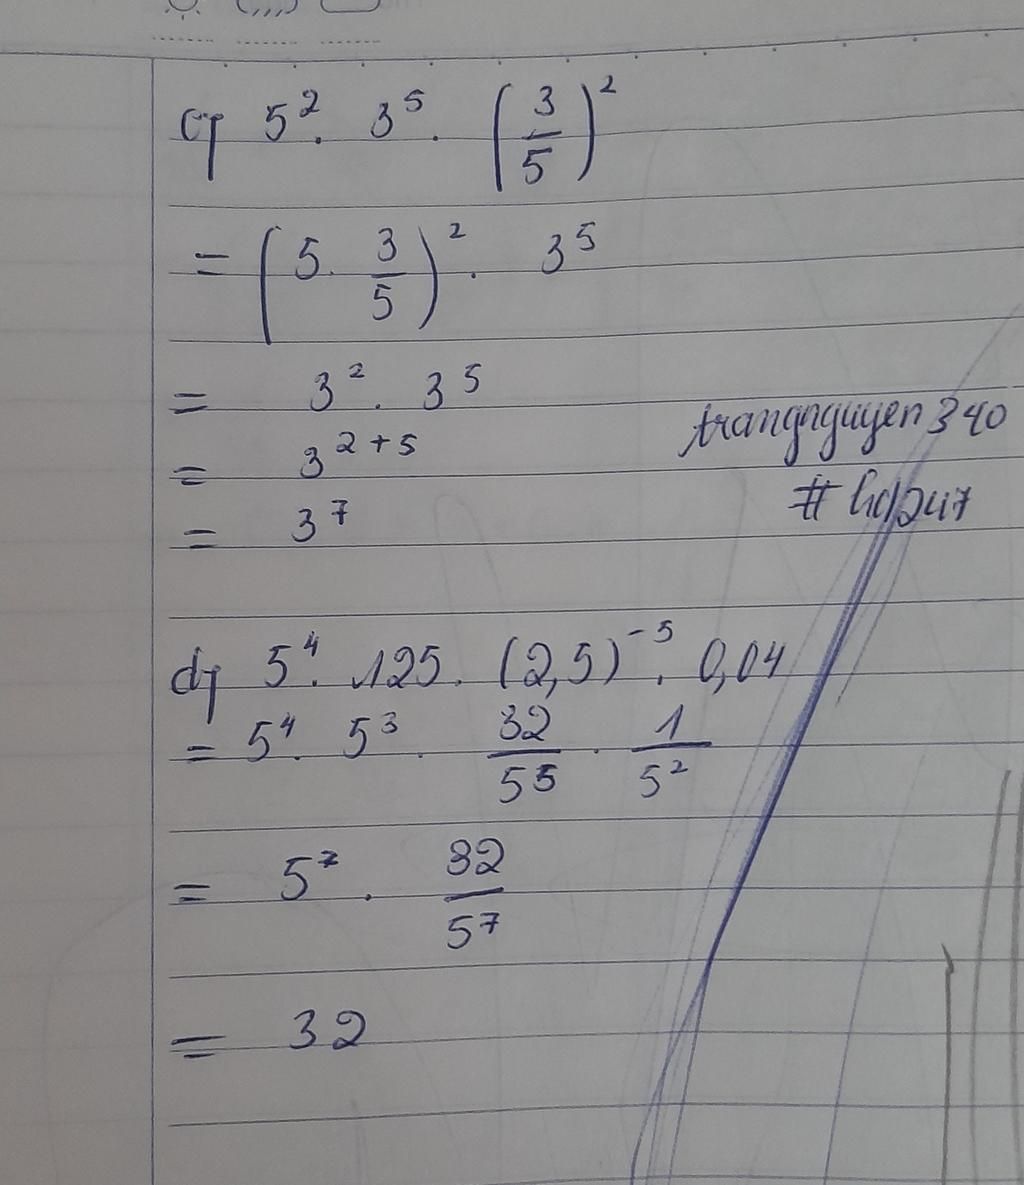 c) 5². 3⁵. (3/5)²
= (5. 3/5)². 3⁵
= 3². 3⁵
= 3²⁺⁵
= 3⁷
trangnguyen340
#hd247
d) 5⁴. 125. (2,5)⁻⁵. 0,04
= 5⁴. 5³. 32/5⁵. 1/5²
= 5⁷. 32/5⁷
= 32